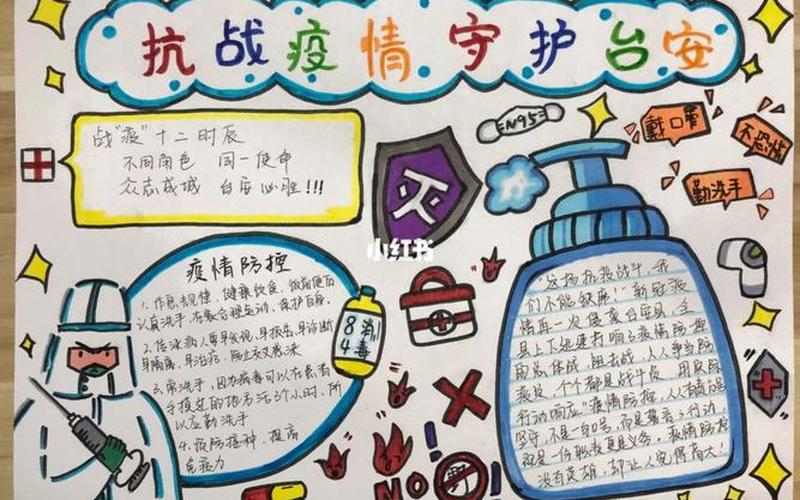 抗战疫情守护台安
战"疫"十二时辰
不同角色 同一使命
众志成城 台安必胜!!!
N95
戴口罩
不恐慌
勤洗手
灭
小红书
疫情防控
1、作息规律,健康饮食,饭前便后
认真洗手,保护自身,
2、传染病人要早发现,早报告,早诊断
早隔离,早治疗,防止交叉感染
3、常洗手,因为病毒可以在你
手摸过的地方活3个小时,所
以应勤洗手
4、预防接种,提高
免疫力
84
消毒
"这场抗疫战斗,我
们不能缺席!"新冠疫
情再一次侵袭台安县,全
县上下迅速打响了疫情防控
的总体战,阻击战,人人争当防
疫员,个个都是战斗员,用实际
行动响应"疫情防控,从我做起
坚守,不是一句口号,而是行动,
是一份职责更是义务,疫情防控
没有英雄,却让人觉得高大!
NO